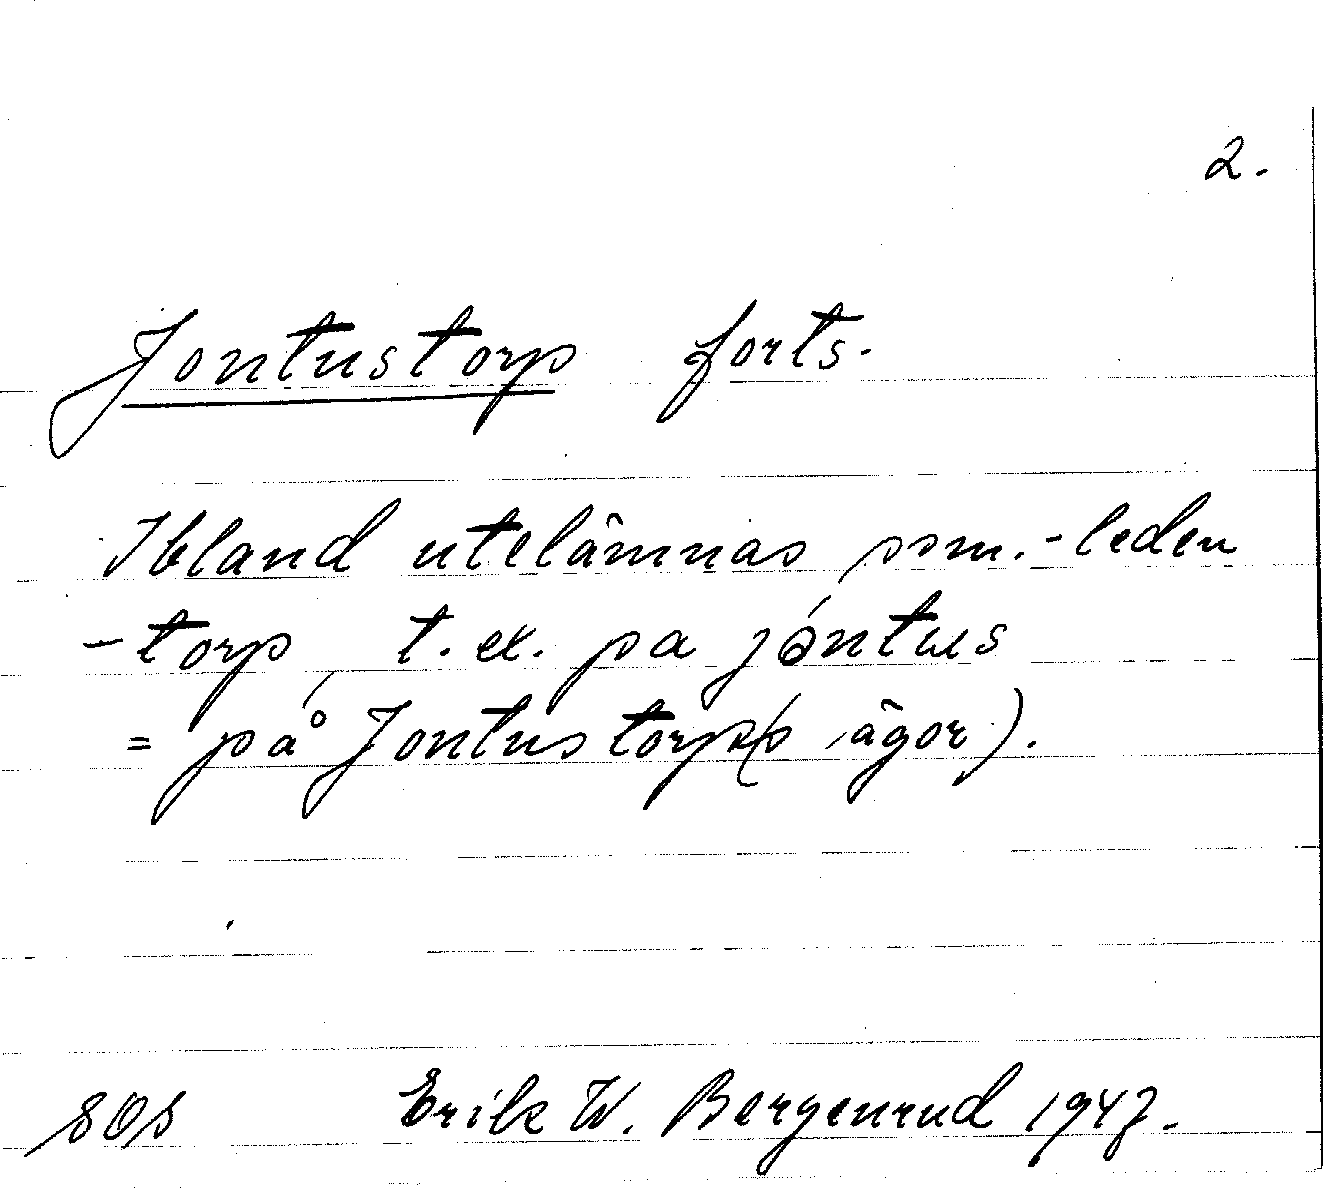 2.
Jontustorp forts.
Ibland utelämnas ssm.-leden
-torp, t. ex. pa jóntus
= på Jontustorp(s ägor).
SOS Erik W. Bergenrud 1947.